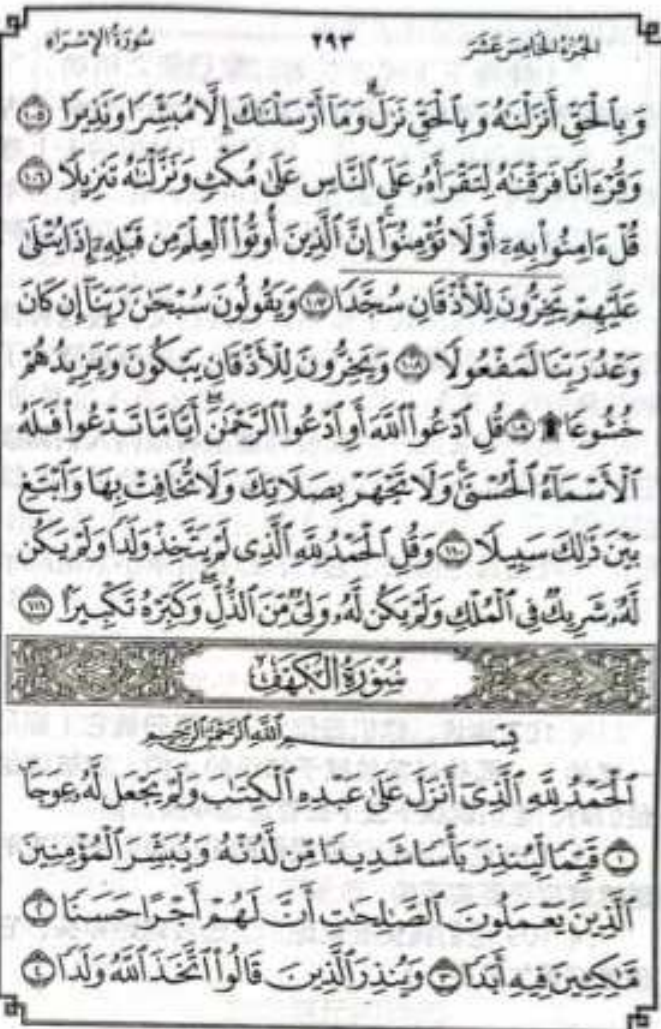 الجزء الخامس عشر ٢٩٣ سورة الإسراء
وَبِٱلْحَقِّ أَنزَلْنَٰهُ وَبِٱلْحَقِّ نَزَلَ ۗ وَمَآ أَرْسَلْنَٰكَ إِلَّا مُبَشِّرًا وَنَذِيرًا ١٠٥
وَقُرْءَانًا فَرَقْنَٰهُ لِتَقْرَأَهُۥ عَلَى ٱلنَّاسِ عَلَىٰ مُكْثٍ وَنَزَّلْنَٰهُ تَنزِيلًا ١٠٦
قُلْ ءَامِنُوا۟ بِهِۦٓ أَوْ لَا تُؤْمِنُوٓا۟ ۚ إِنَّ ٱلَّذِينَ أُوتُوا۟ ٱلْعِلْمَ مِن قَبْلِهِۦٓ إِذَا يُتْلَىٰ
عَلَيْهِمْ يَخِرُّونَ لِلْأَذْقَانِ سُجَّدًا ١٠٧ وَيَقُولُونَ سُبْحَٰنَ رَبِّنَآ إِن كَانَ
وَعْدُ رَبِّنَا لَمَفْعُولًا ١٠٨ وَيَخِرُّونَ لِلْأَذْقَانِ يَبْكُونَ وَيَزِيدُهُمْ
خُشُوعًا ۩ ١٠٩ قُلِ ٱدْعُوا۟ ٱللَّهَ أَوِ ٱدْعُوا۟ ٱلرَّحْمَٰنَ ۖ أَيًّا مَّا تَدْعُوا۟ فَلَهُ
ٱلْأَسْمَآءُ ٱلْحُسْنَىٰ ۚ وَلَا تَجْهَرْ بِصَلَاتِكَ وَلَا تُخَافِتْ بِهَا وَٱبْتَغِ
بَيْنَ ذَٰلِكَ سَبِيلًا ١١٠ وَقُلِ ٱلْحَمْدُ لِلَّهِ ٱلَّذِى لَمْ يَتَّخِذْ وَلَدًا وَلَمْ يَكُن
لَّهُۥ شَرِيكٌ فِى ٱلْمُلْكِ وَلَمْ يَكُن لَّهُۥ وَلِىٌّ مِّنَ ٱلذُّلِّ ۖ وَكَبِّرْهُ تَكْبِيرًۢا ١١١
سُورَةُ الكَهْفِ
بِسْمِ ٱللَّهِ ٱلرَّحْمَٰنِ ٱلرَّحِيمِ
ٱلْحَمْدُ لِلَّهِ ٱلَّذِىٓ أَنزَلَ عَلَىٰ عَبْدِهِ ٱلْكِتَٰبَ وَلَمْ يَجْعَل لَّهُۥ عِوَجَا ۜ
١ قَيِّمًا لِّيُنذِرَ بَأْسًا شَدِيدًا مِّن لَّدُنْهُ وَيُبَشِّرَ ٱلْمُؤْمِنِينَ
ٱلَّذِينَ يَعْمَلُونَ ٱلصَّٰلِحَٰتِ أَنَّ لَهُمْ أَجْرًا حَسَنًا ٢
مَّٰكِثِينَ فِيهِ أَبَدًا ٣ وَيُنذِرَ ٱلَّذِينَ قَالُوا۟ ٱتَّخَذَ ٱللَّهُ وَلَدًا ٤